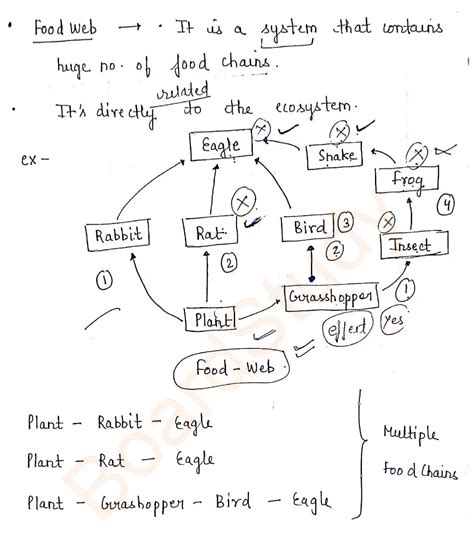 • Food Web → • It is a system that contains
huge no. of food chains.
• It's directly related to the ecosystem.
ex -
Eagle
Snake
Frog
Rabbit
Rat
Bird
Insect
Plant
Grasshopper
①
②
③
②
④
①
effert
Yes
Food - Web
Plant - Rabbit - Eagle
Plant - Rat - Eagle
Plant - Grasshopper - Bird - Eagle
Multiple
Food Chains
BoardStudy